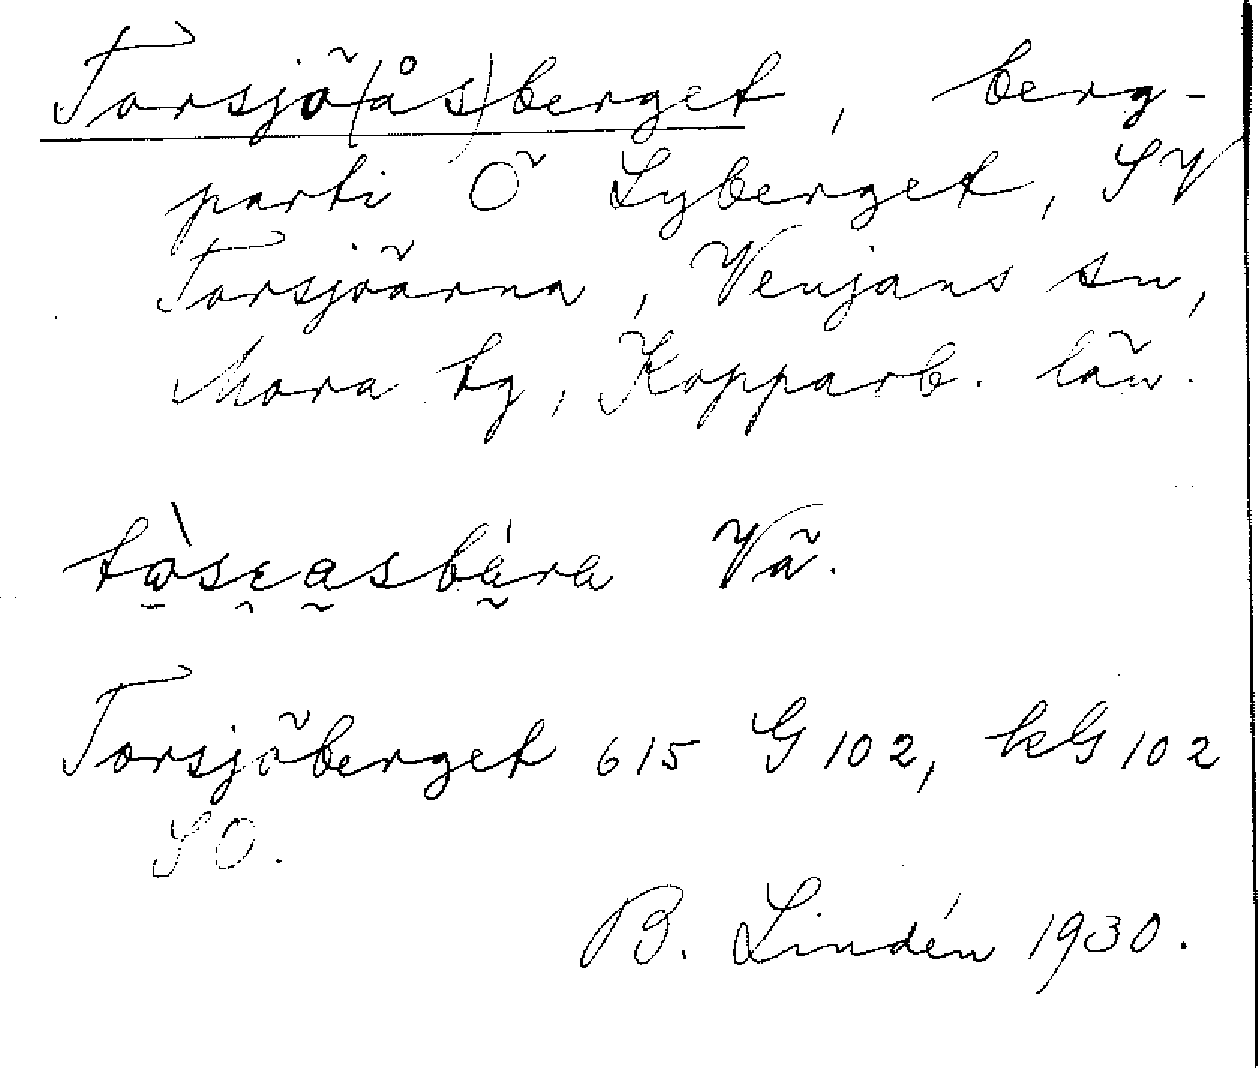 Torsjö(ås)berget, berg-
parti Ö Lyberget, SV
Torsjöarna, Venjans sn,
Mora tg, Kopparb. län.
Vä.
Torsjöberget 615 G 102, kG 102
SO.
B. Lindén 1930.